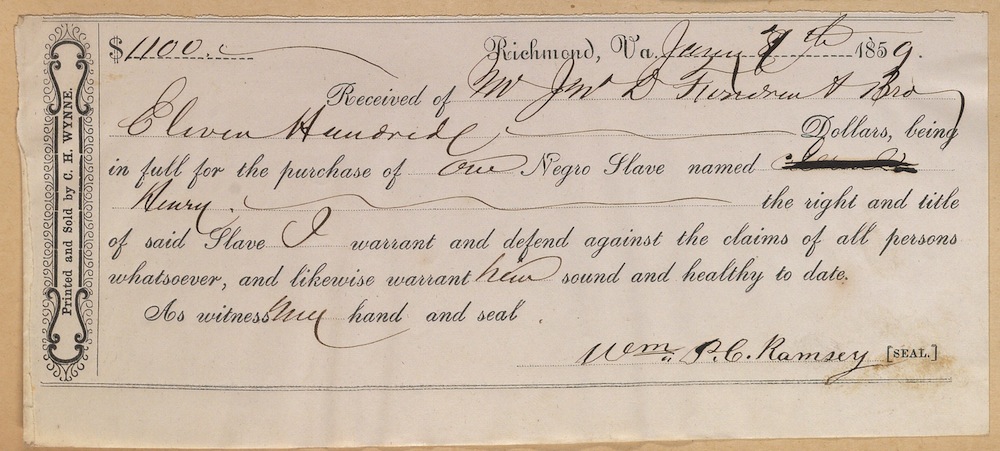 Printed and Sold by C. H. WYNE.
$1100.
Richmond, Va. Jany 7th 1859.
Received of Mr Jno D Fondren & Bro
Eleven Hundred Dollars, being
in full for the purchase of one Negro Slave named
Henry. the right and title
of said Slave I warrant and defend against the claims of all persons
whatsoever, and likewise warrant him sound and healthy to date.
As witness my hand and seal.
Wm. P. C. Ramsey [SEAL.]